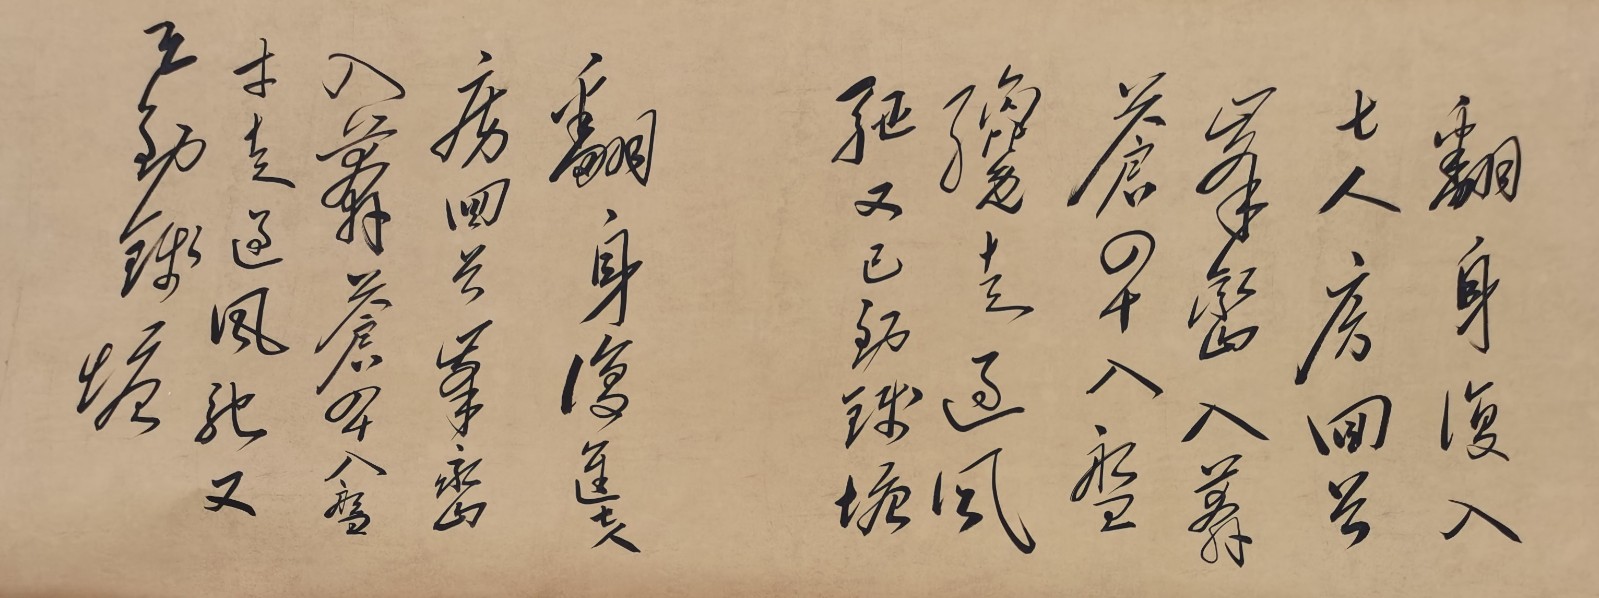 翻身復入
七人房回首
峯巒入莽
蒼四十八盤
纔走過風
馳又已到錢塘
翻身復進七人
房回首峯巒
入莽蒼四十八盤
才走過風馳又
已到錢塘